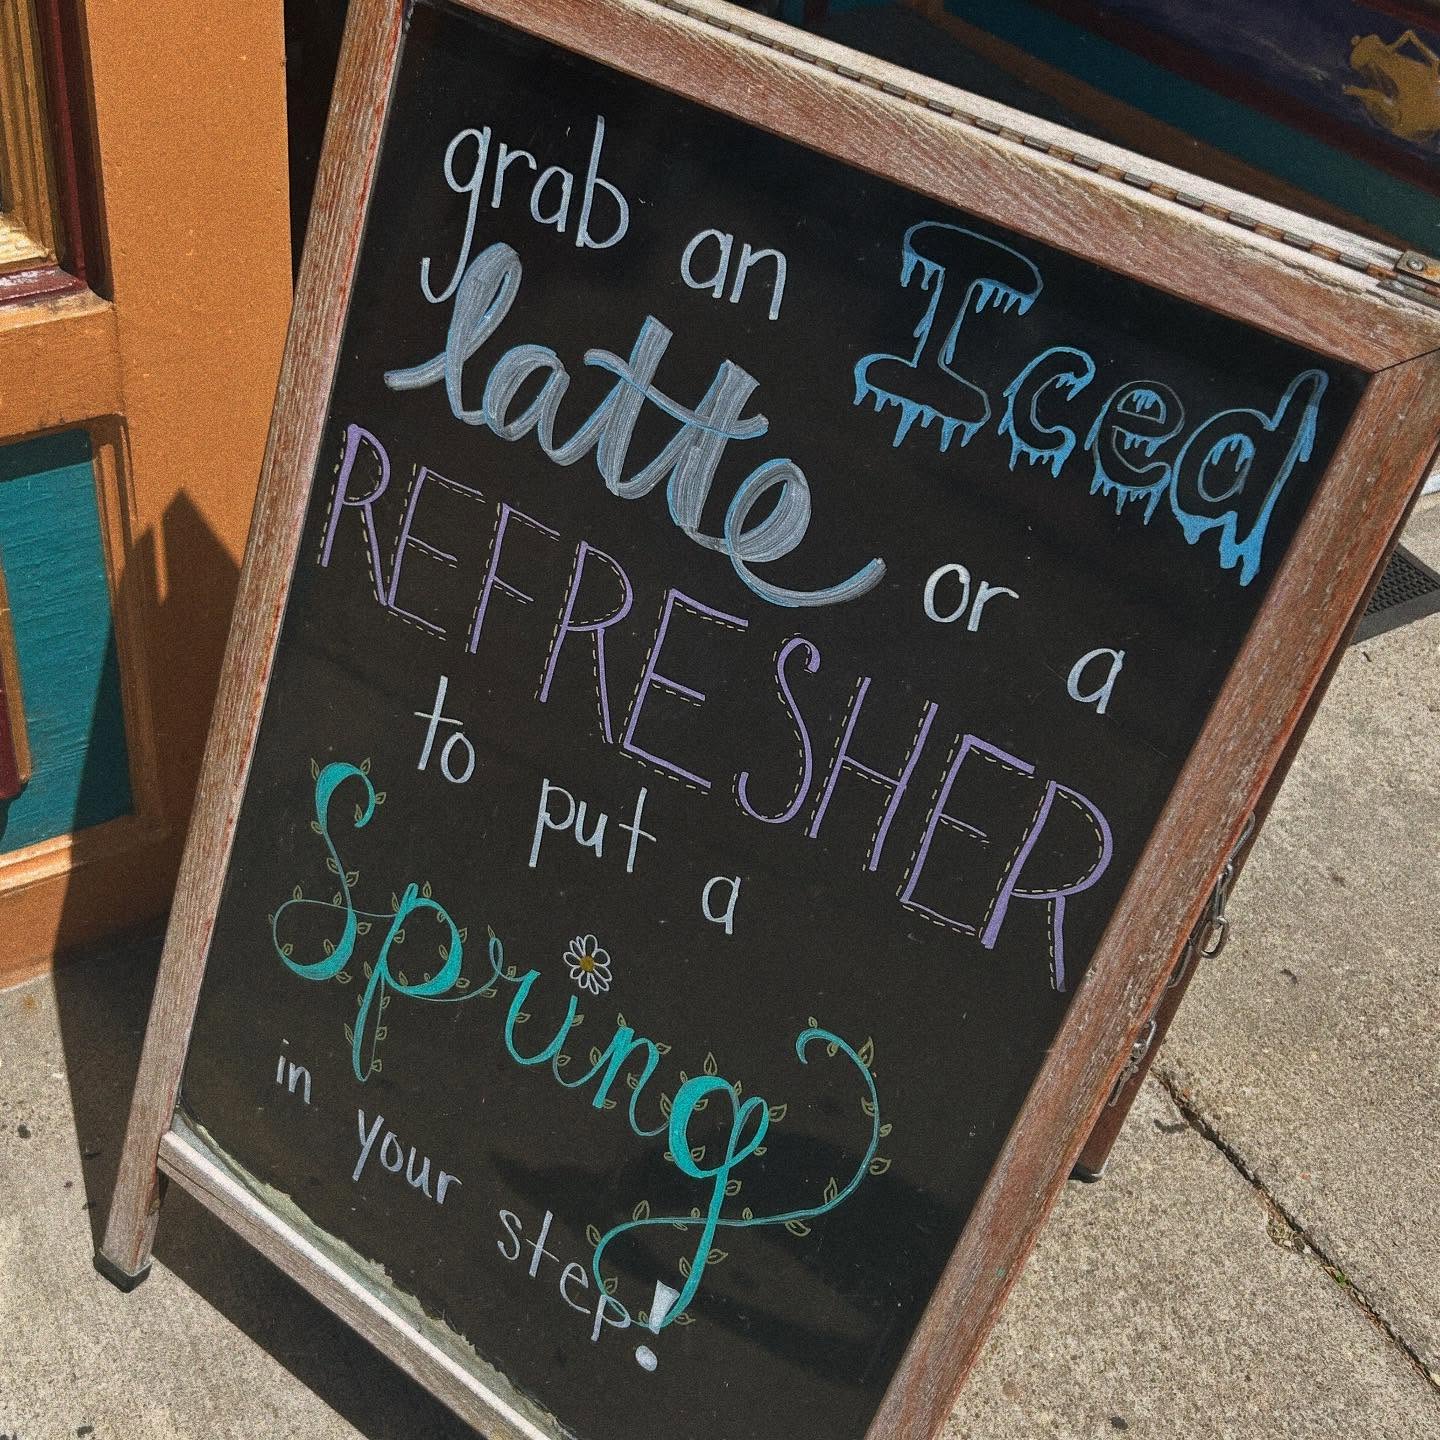 grab an Iced
latte or a
REFRESHER
to put a
Spring
in your step!